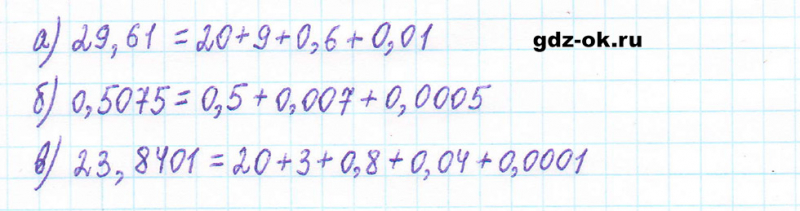 а) 29,61 = 20+9+0,6+0,01
gdz-ok.ru
б) 0,5075 = 0,5+0,007+0,0005
в) 23,8401 = 20+3+0,8+0,04+0,0001